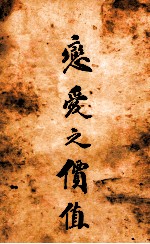 戀愛之價值